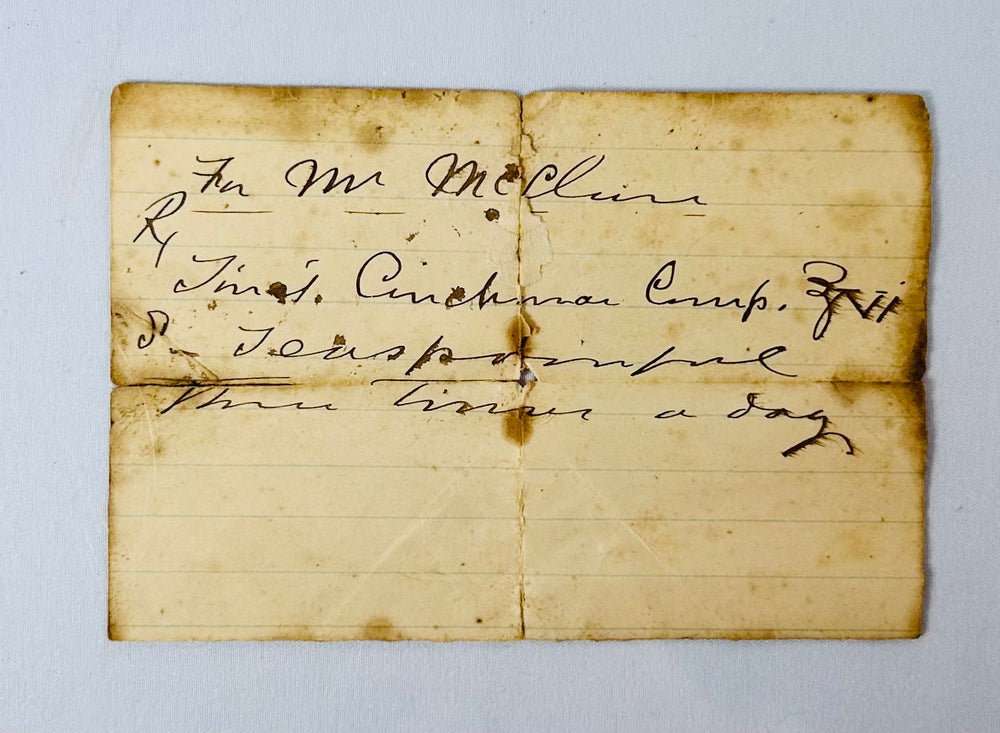 For Mr McClure
Rx
Tinct. Cinchonae Comp. ℥vii
S. Teaspoonful
three times a day